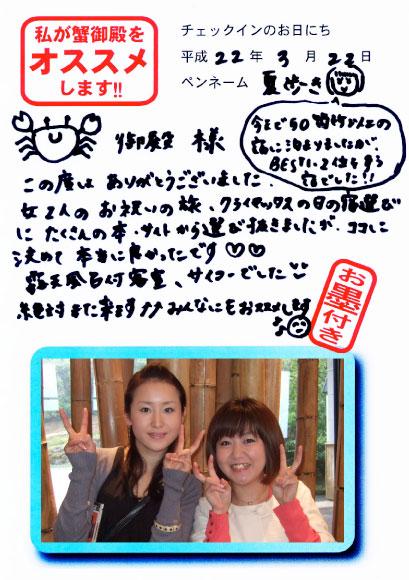 私が蟹御殿を
オススメ
します!!
チェックインのお日にち
平成 22 年 3 月 22 日
ペンネーム
今まで50
宿に泊まりましたが、
BEST1、2位を争う
宿でした!!
御殿 様
この度は ありがとうございました。
女2人の お祝いの旅、クライマックスの日の宿選び
に たくさんの本・サイトから選び抜きましたが、ココに
決めて 本当に良かったです♡♡
露天風呂付客室、サイコーでした
絶対また来ます!! みんなにもおススメします
お墨付き